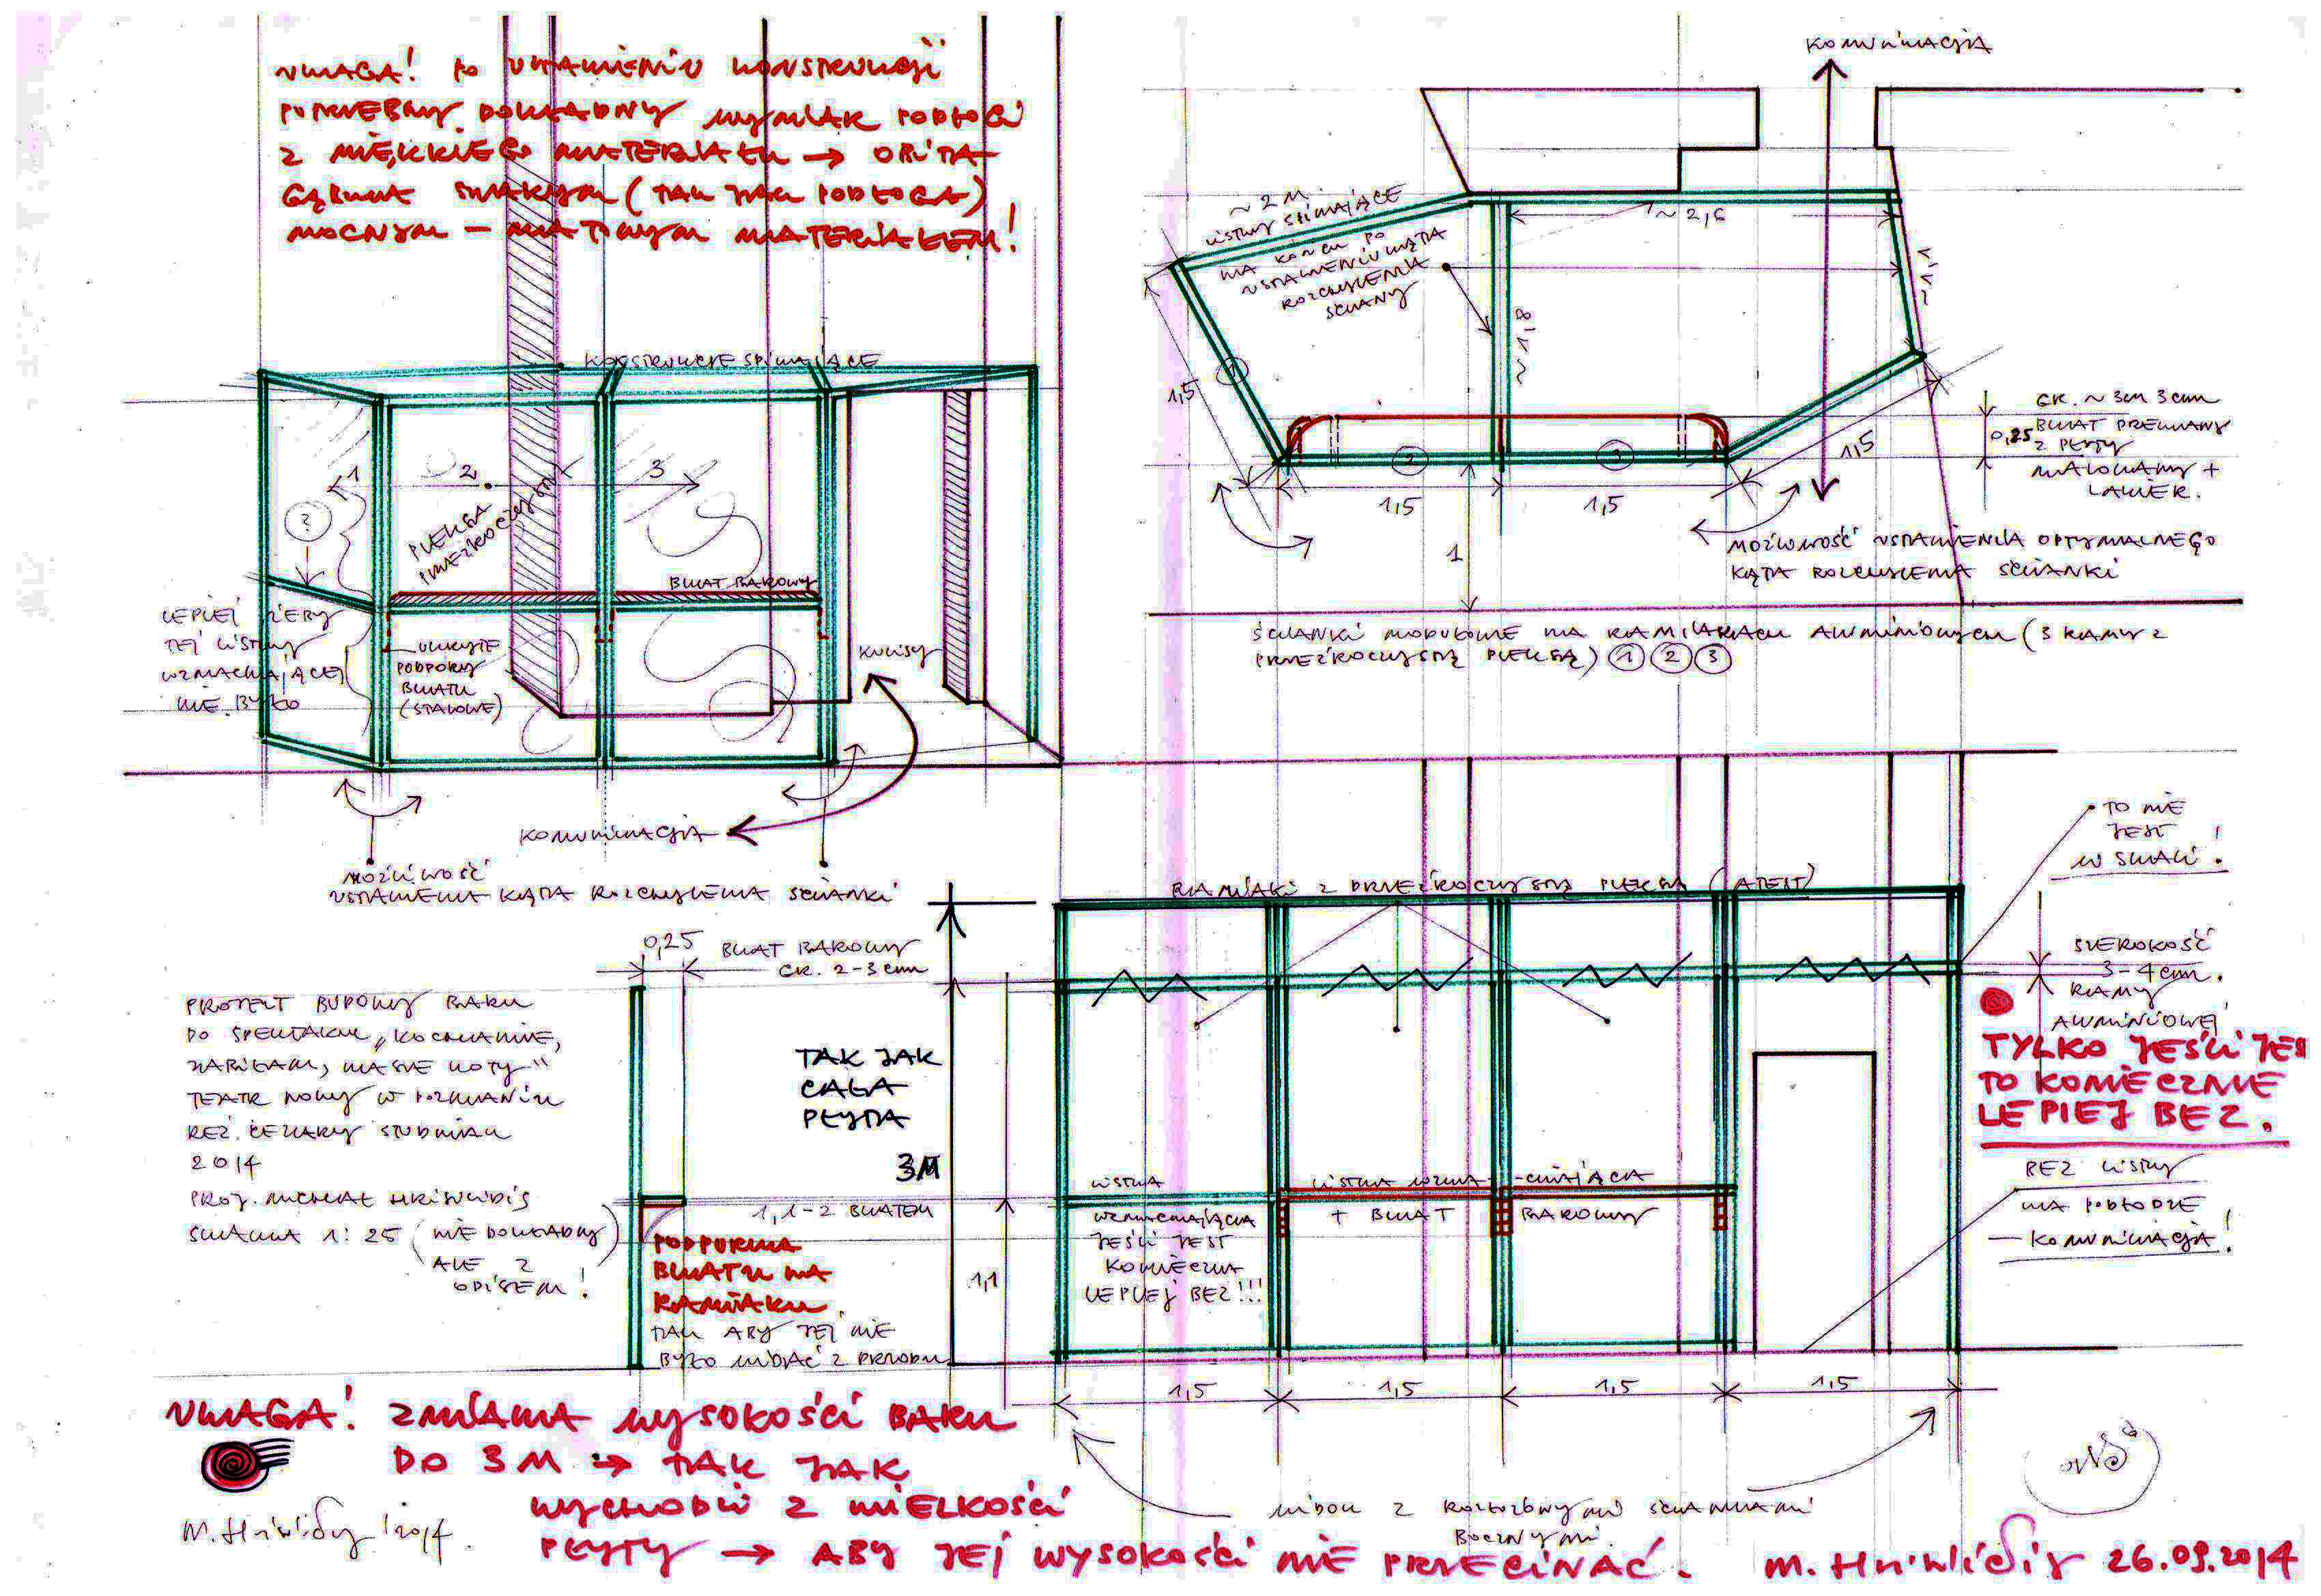 UWAGA! PO USTAWIENIU KONSTRUKCJI
POTRZEBNY DOKŁADNY WYMIAR PODŁOGI
Z MIĘKKIEGO MATERIAŁU → OBITA
GĄBKĄ (TAK JAK PODŁOGA)
MOCNYM – MATOWYM MATERIAŁEM!
KONSTRUKCJE SPINAJĄCE
1
2
3
?
PLEKSA
PRZEŹROCZYSTA
BLAT BAROWY
LEPIEJ ŻEBY
TEJ LISTWY
WZMACNIAJĄCEJ
NIE BYŁO
UKRYTE
PODPORY
BLATU
(STALOWE)
KULISY
KOMUNIKACJA
MOŻLIWOŚĆ
USTAWIENIA KĄTA ROZCHYLENIA ŚCIANKI
KOMUNIKACJA
~ 2 M
LISTWY SPINAJĄCE
NA KOŃCU PO
USTAWIENIU KĄTA
ROZCHYLENIA
ŚCIANY
~ 2,6
~ 1,8
1
1,5
2
3
1,5
1,5
1,5
1
GR. ~ 3cm
0,25 BLAT DREWIANY
Z PŁYTY
MALOWANY +
LAKIER.
MOŻLIWOŚĆ USTAWIENIA OPTYMALNEGO
KĄTA ROZCHYLENIA ŚCIANKI
ŚCIANKI MODUŁOWE NA RAMIAKACH ALUMINIOWYCH (3 RAMY Z
PRZEŹROCZYSTĄ PLEKSĄ) 1 2 3
TO NIE
JEST
W SKALI!
RAMIAKI Z PRZEŹROCZYSTĄ PLEKSĄ (ATEST)
0,25
BLAT BAROWY
GR. 2-3 cm
SZEROKOŚĆ
3-4 cm.
RAMY
ALUMINIOWEJ
TYLKO JEŚLI JES
TO KONIECZNIE
LEPIEJ BEZ.
PROJEKT BUDOWY BARU
DO SPEKTAKLU „KOCHANIE,
ZABIŁAM NASZE KOTY"
TEATR NOWY W POZNANIU
REŻ. CEZARY STUDNIAK
2014
PROJ. MICHAŁ HRISULIDIS
SKALA 1:25 (NIE DOKŁADNY
ALE Z
OPISEM!)
TAK JAK
CAŁA
PŁYTA
3M
1,1-Z BLATEM
PODPÓRKA
BLATU NA
RAMIAKU.
TAK ABY JEJ NIE
BYŁO WIDAĆ Z PRZODU
1,1
LISTWA
WZMACNIAJĄCA
JEŚLI JEST
KONIECZNA
LEPIEJ BEZ!!!
LISTWA WZMA-CNIAJĄCA
+ BLAT BAROWY
BEZ LISTWY
NA PODŁODZE
– KOMUNIKACJA!
1,5
1,5
1,5
1,5
UWAGA! ZMIANA WYSOKOŚCI BARU
DO 3M → TAK JAK
WYCHODZI Z WIELKOŚCI
PŁYTY → ABY JEJ WYSOKOŚCI NIE PRZECINAĆ.
WIDOK Z ROZŁOŻONYMI ŚCIANKAMI
BOCZNYMI.
2014.
26.09.2014